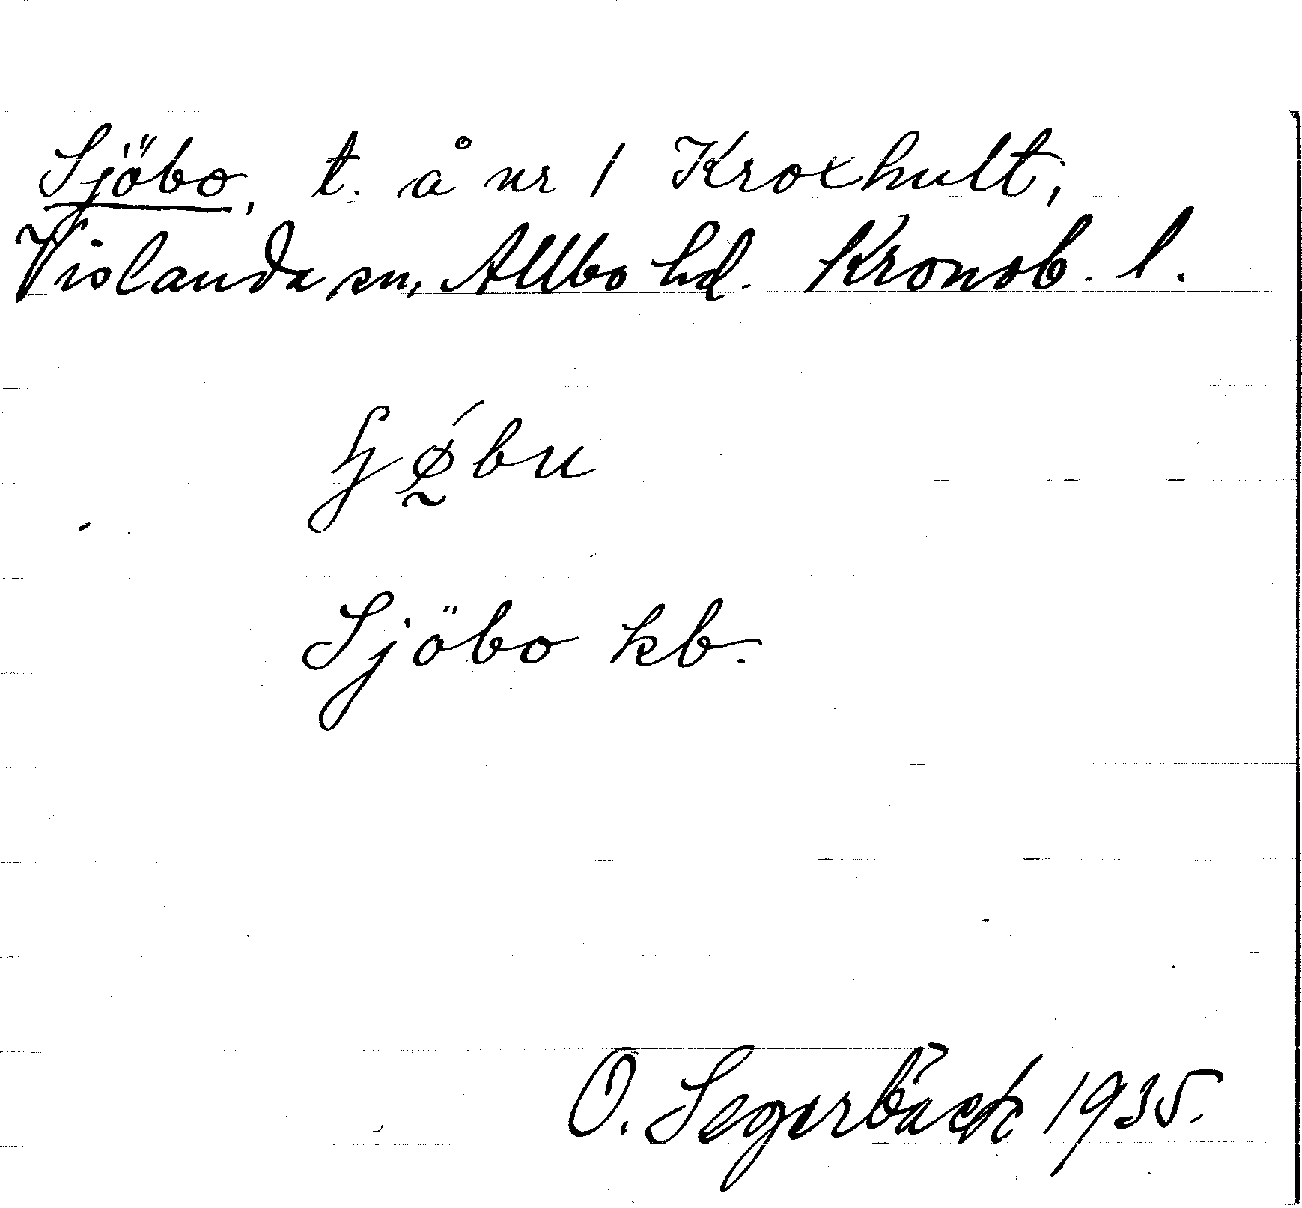 Sjöbo, t. å nr 1 Kroxhult,
Vislanda sn, Allbo hd. Kronob. l.
Sjöbo kb.
O. Segerbäck 1935.